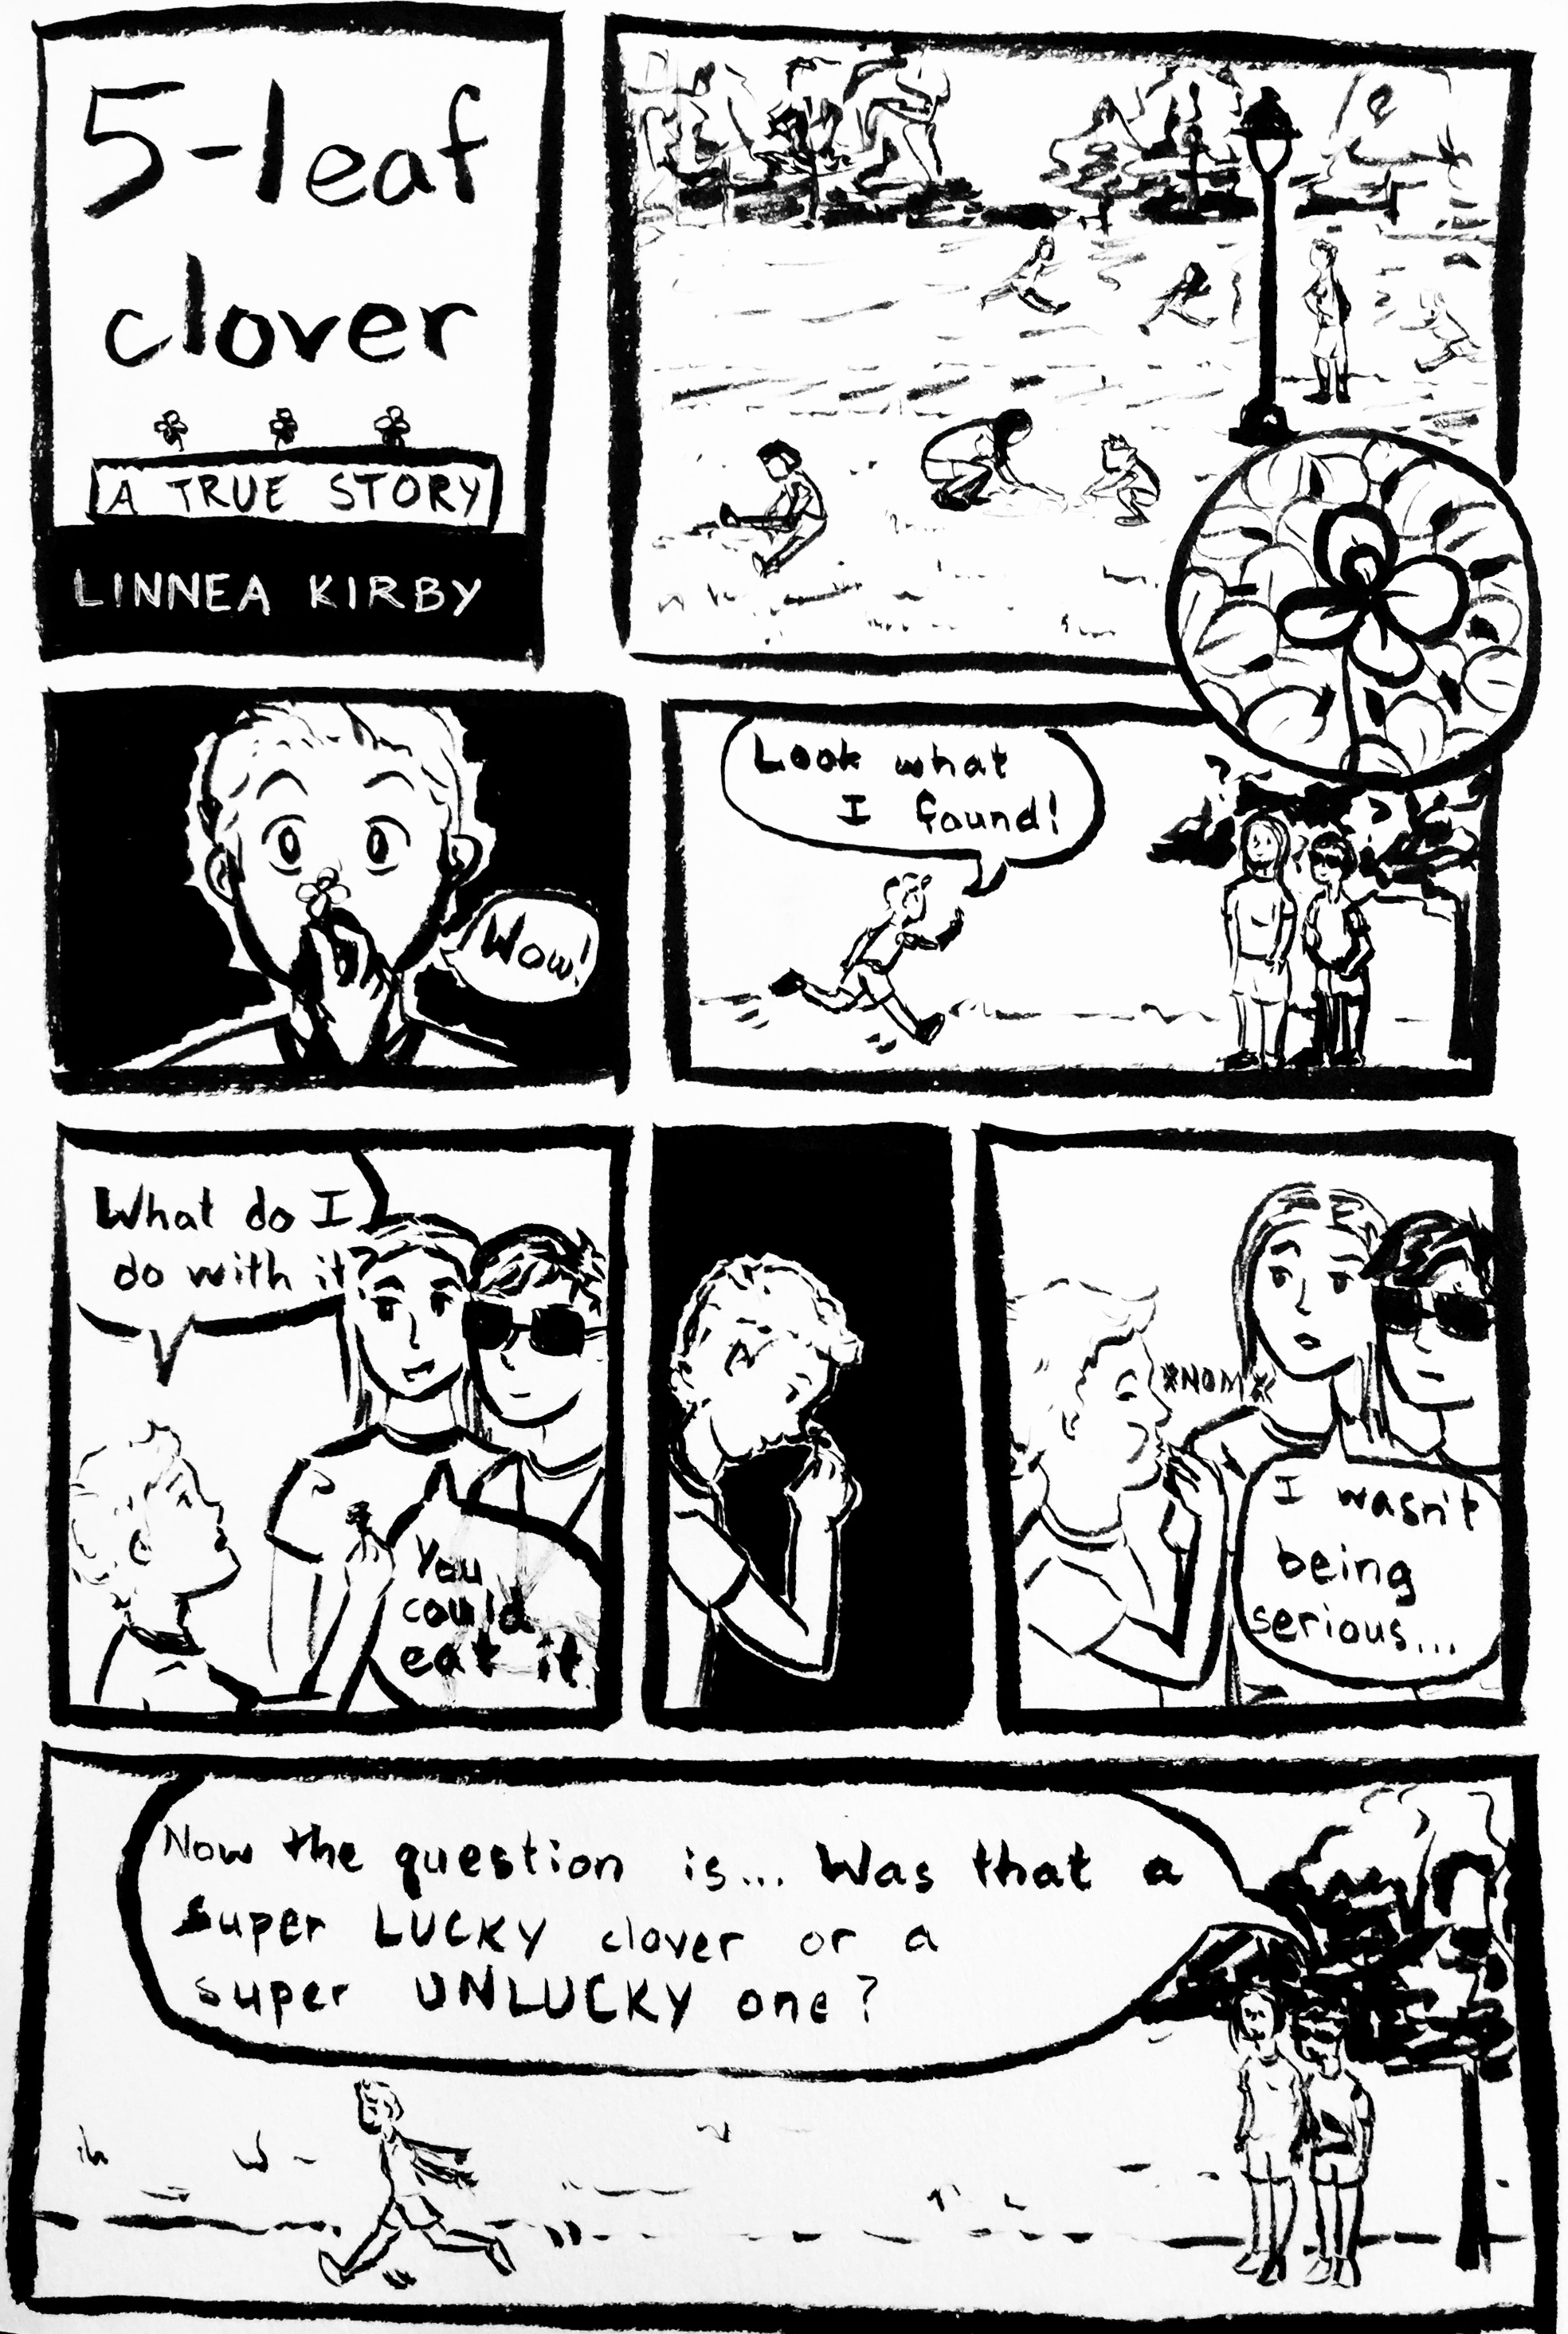 5-leaf
clover
A TRUE STORY
LINNEA KIRBY
Wow!
Look what
I found!
?
?
What do I
do with it?
You
could
eat it.
*NOM*
I wasn't
being
serious...
Now the question is... Was that a
super LUCKY clover or a
super UNLUCKY one?